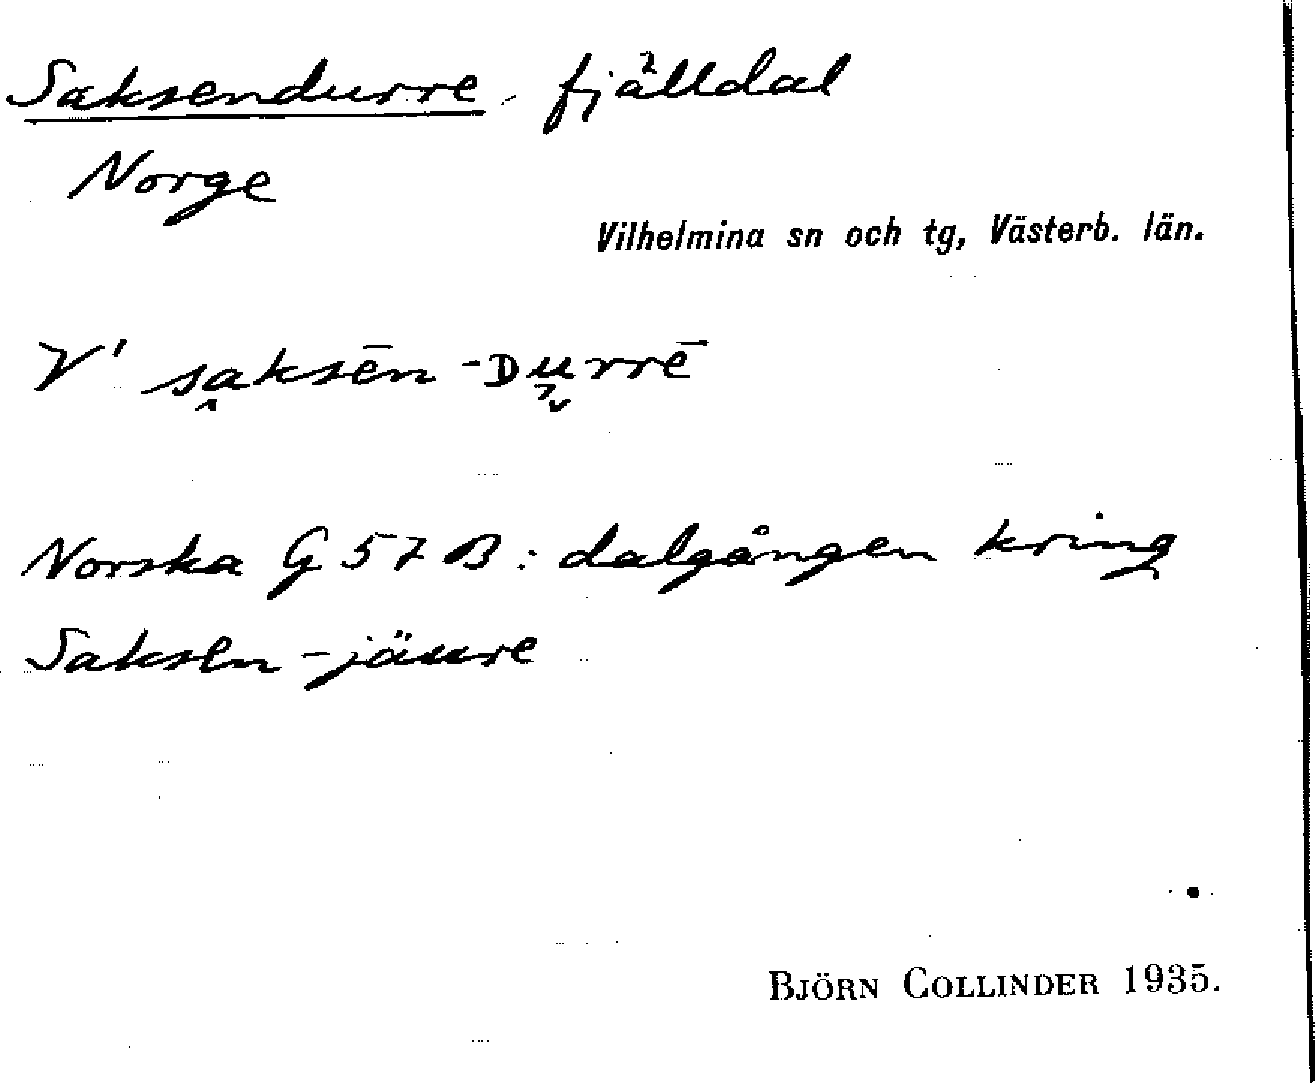 Saksendurre, fjälldal
Norge
Vilhelmina sn och tg, Västerb. län.
V' sa̭ksēn-ᴅu̬rrē
Norska G 57 B: dalgången kring
Saksen-jäure
BJÖRN COLLINDER 1935.